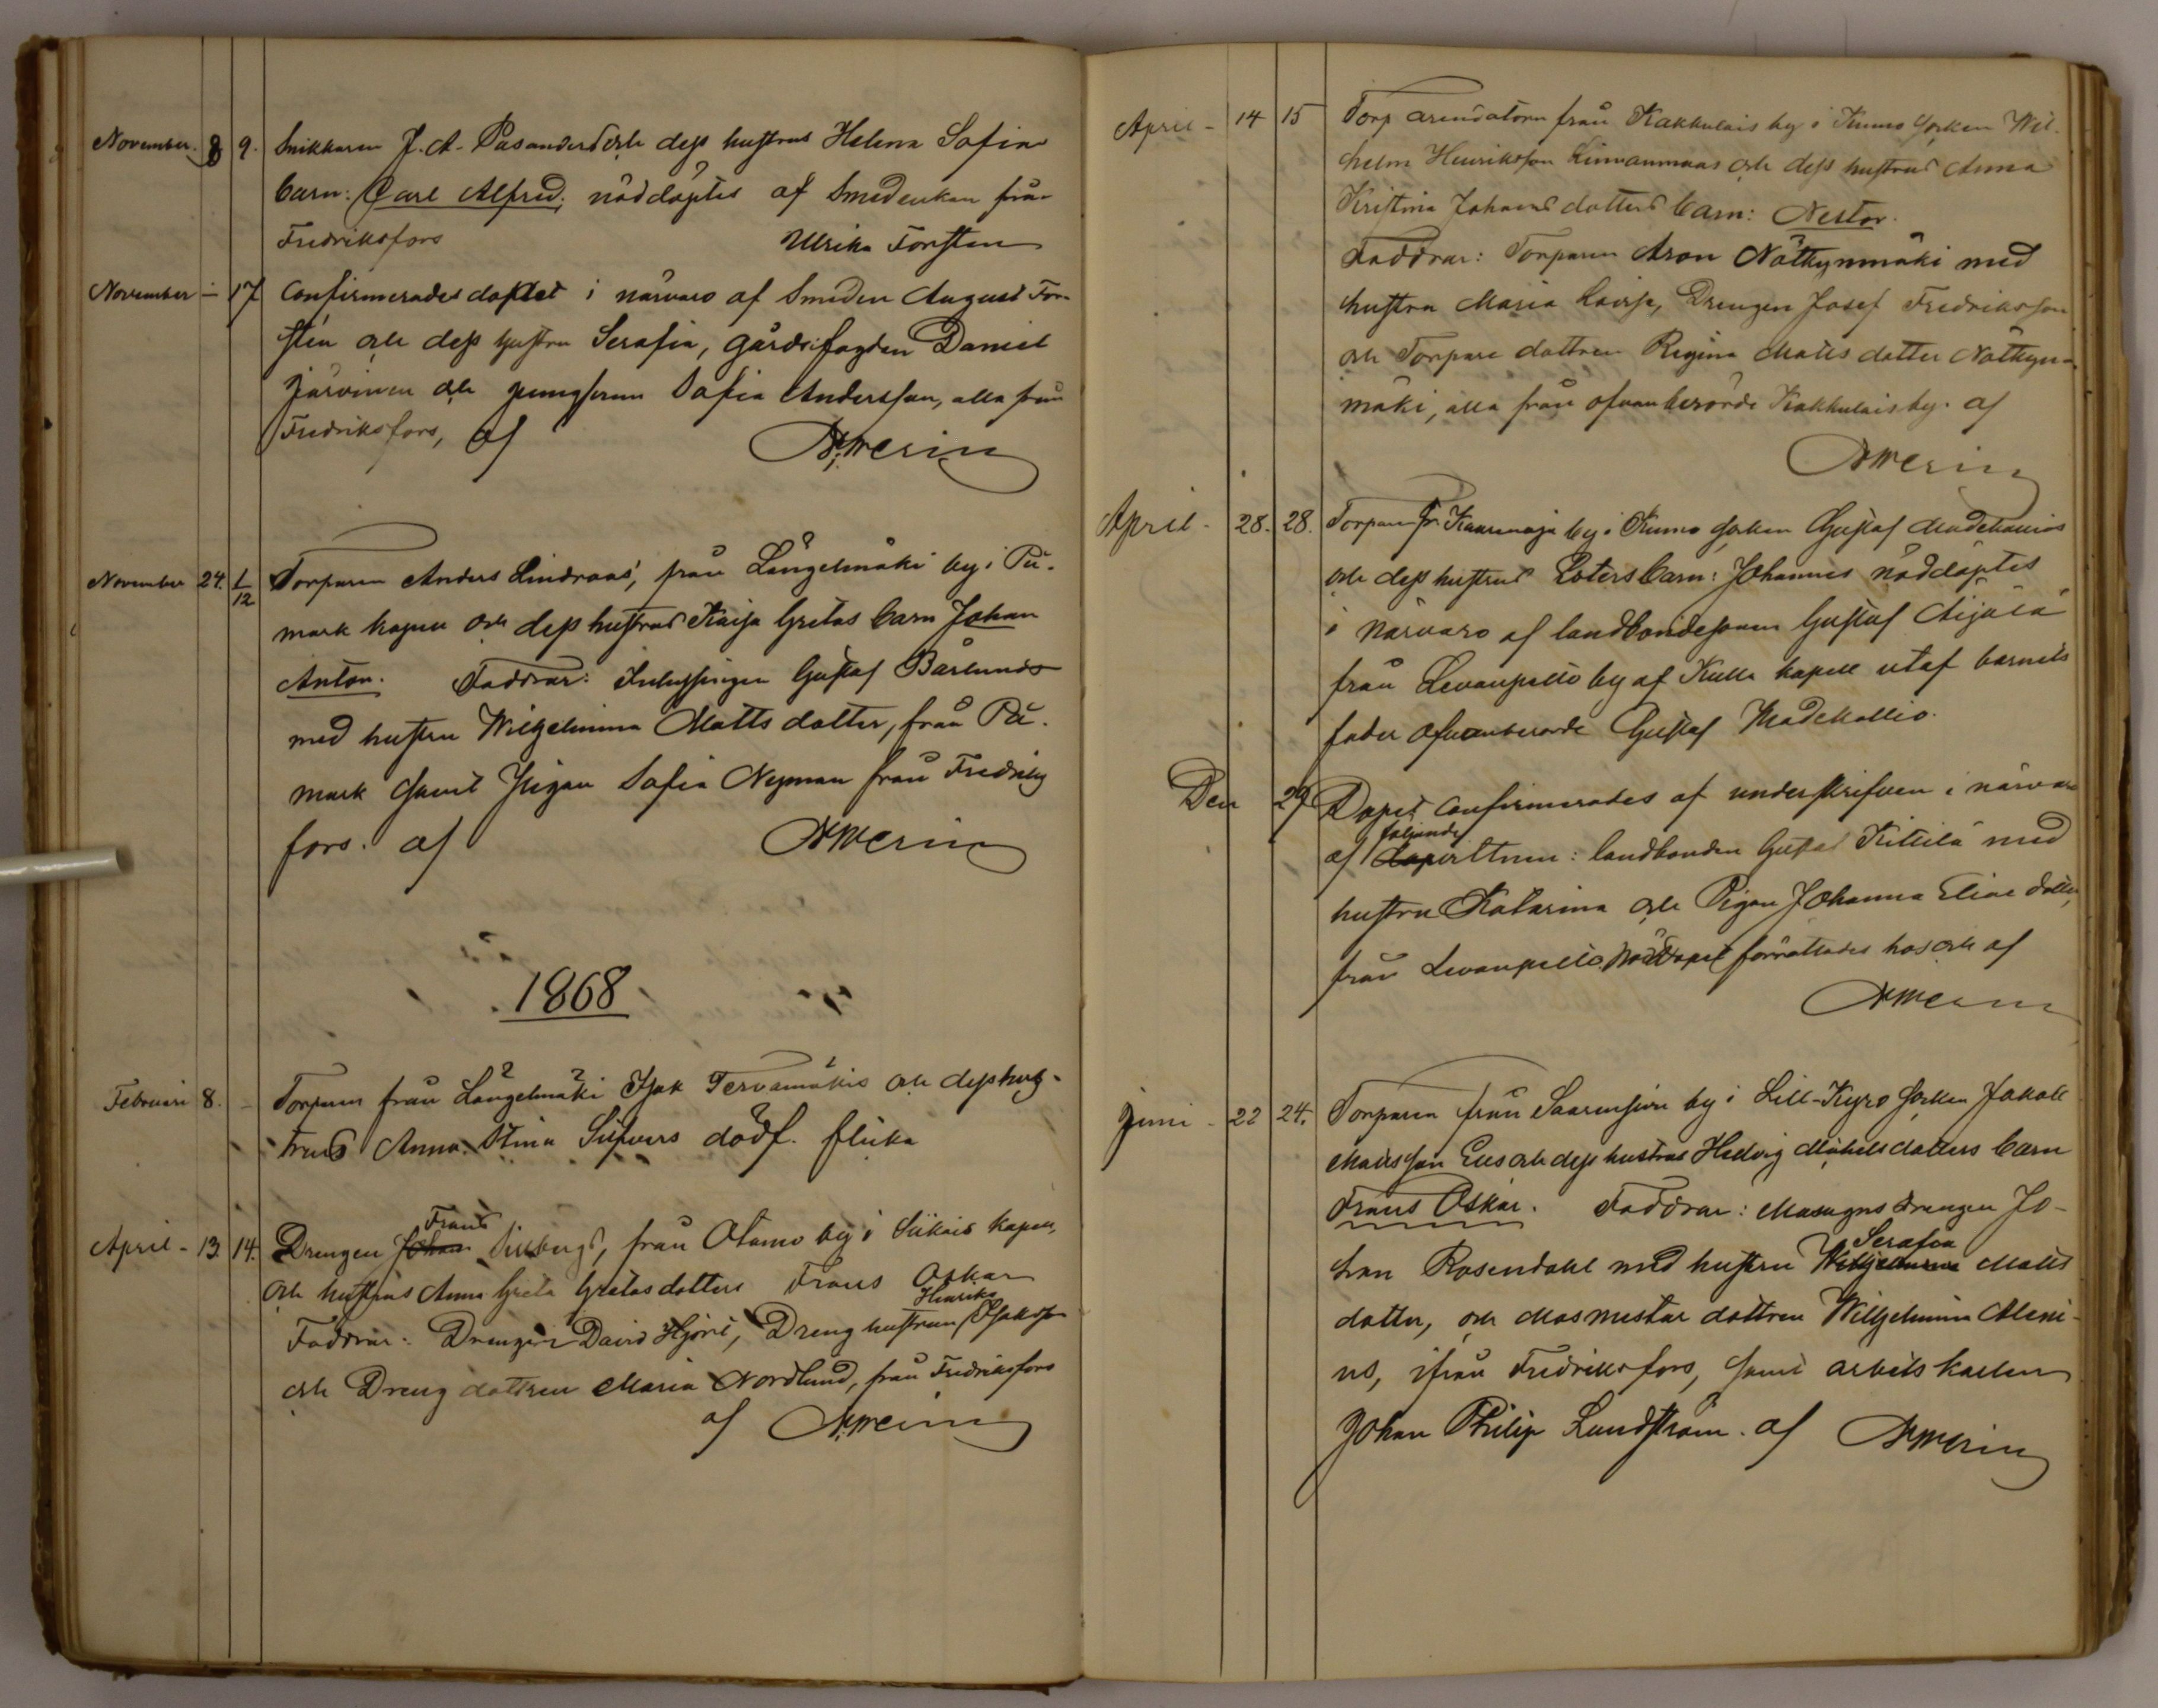 November. 8 9. Snikkaren J. A. Pasanders och dess hustrus Helena Sofia
barn: Carl Alfred; nöddöptes af Smedenkan från
Fredriksfors Ulrika Forsten
November – 17 Confirmerades döptet i närvaro af Smeden August For-
stén och dess hustru Serafia, gårdsfogden Daniel
Järvinen och jungfrun Sofia Andersson, alla från
Fredriksfors, af
November 24. 1/12 Torparen Anders Lindroos', från Långelmäki by i På-
mark kapell och dess hustrus Kaisa Gretas barn Johan
Anton. Faddrar: Inhysingen Gustaf Bärlund
med hustru Wilhelmina Mattsdotter, från På-
mark samt Pigan Sofia Nyman från Fredriks
fors. af
1868
Februari 8. – Torparen från Långelmäki Isak Tervamäkis och dess hus-
trus Anna Stina dödf. flicka
April – 13. 14. Drengen Johan Frans från Otamo by i Siikais kapell,
och hustrus Anna Greta Gretasdotters Frans Oskar
Faddrar: Drengen David Hjört, Dreng hustrun Henrika Isaksson
och Dreng dottren Maria Nordlund, från Fredriksfors
af
April – 14 15 Torp arendatorn från Kakkulais by i Kumo socken Wil-
helm Henriksson och dess hustrus Anna
Kristina Johans dotters barn: Nestor.
Faddrar: Torparen Aron Nätkynmäki med
hustru Maria Lovisa, Drengen Josef Fredriksson
och Torpare dottren Regina Matts dotter Nätkyn-
mäki, alla från ofvanberörde Kakkulais by. af
April – 28. 28. Torparen fr. Kaarenoja by i Kumo socken Gustaf Madekallios
och dess hustrus Lovisas barn: Johannes nöddöptes
i närvaro af landbondesonen Gustaf Äijälä
från Levanpelto by af Kulla kapell utaf barnets
fader ofvanberörde Gustaf Madekallio.
Den 29 Dopet confirmerades af underskrifven i närvaro
af följande dopvittnen: landbonden Gustaf Kittilä med
hustru Katarina och Pigan Johanna Elias dotter,
från Levanpelto. Nöddopet förrättades hos och af
Juni – 22 24. Torparen från by i Lill-Kyro socken Jakob
Mattsson och dess hustrus Hedvig Mickelsdotters barn
Frans Oskar. Faddrar: Masugns drengen Jo-
han Rosendahl med hustru Wilhelmina Serafia Matts
dotter, och Masmestar dottren Wilhelmina Aleni-
us, ifrån Fredriksfors, samt arbetskarlen
Johan Philip Lundström. af